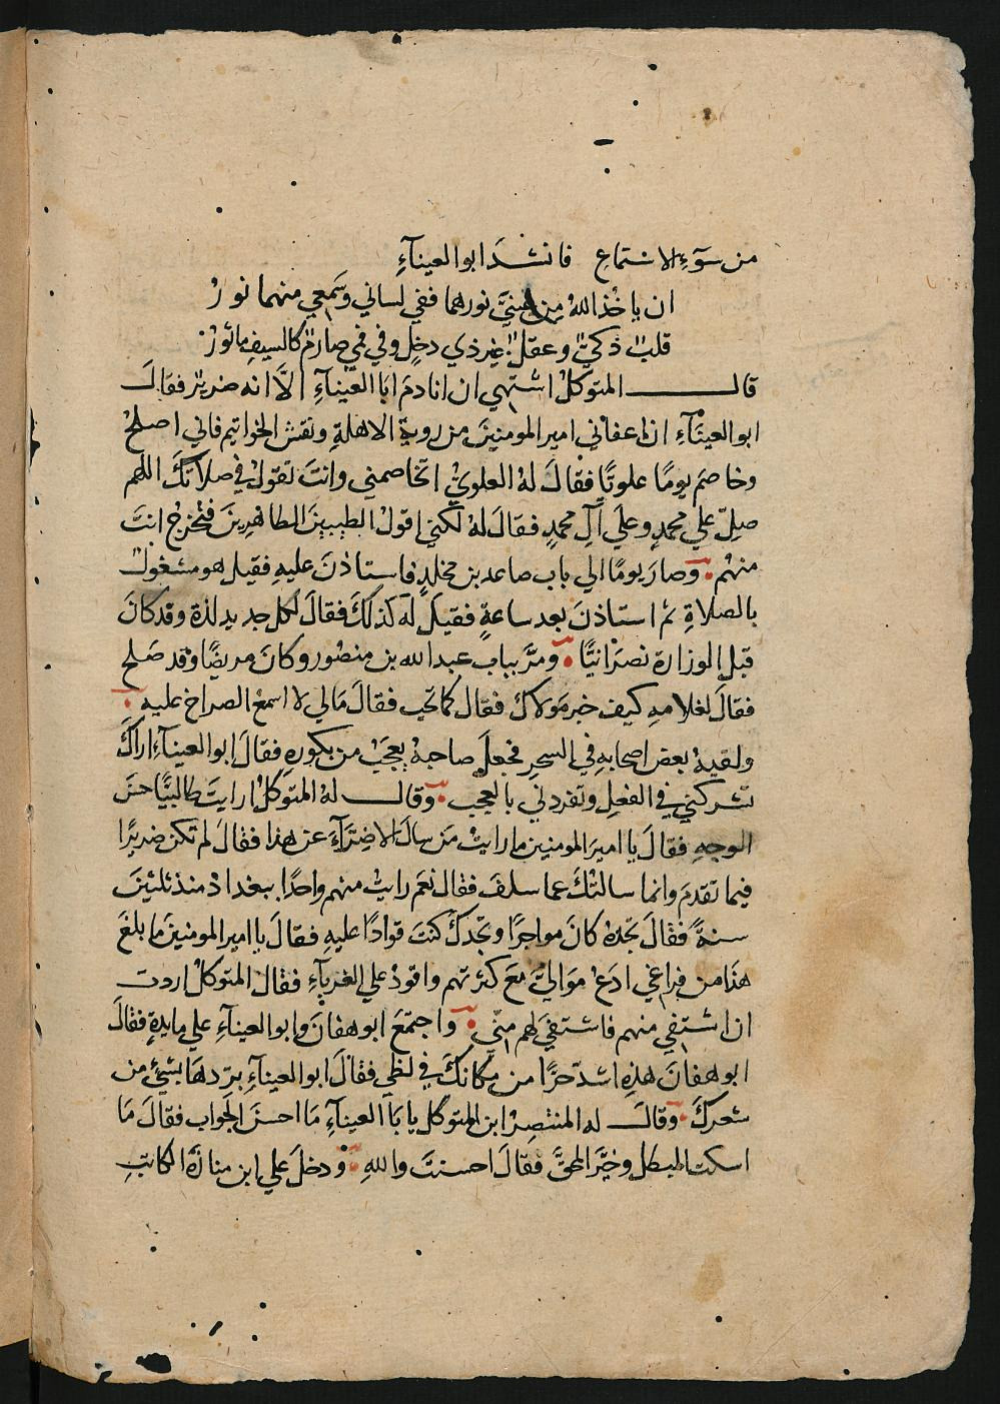 من سوٓءِ الاستماعِ فانشدَ ابو العينآءِ
ان ياخُذ اللهُ من عينيَّ نورهما ففي لساني وسَمعي منهما نورُ
قلبٌ ذكيٌ وعقلٌ غير ذي دخلٍ وفي فمي صارمٌ كالسيفِ ماثورُ
قالــــ المتوكلُ اشتهي ان انادمَ ابَا العَيناءِ الَّا انه ضريرٌ فقالَ
ابو العينآءِ ان اعفاني امير المومنينَ من رويةِ الاهلةِ ونقش الخواتيم فاني اصلحُ
وخاصمَ يومًا علويًّا فقالَ لهُ العلويُّ اتخاصمني وانتَ تقولُ في صلاتكَ اللهم
صلِّ علي محمدٍ وعلَي آلِ محمدٍ فقالَ لهُ لكني اقولُ الطيبينَ الطاهرينَ فتخرج انتَ
منهُم وصارَ يومًا الي باب صاعد بن مخلدٍ فاستاذنَ عليهِ فقيل هو مشغولٌ
بالصلاةِ ثم استاذنَ بعد ساعةٍ فقيل لَهُ كذلكَ فقالَ لكل جديد لذة وقد كانَ
قبل الوزارة نصرَانيًّا ومرَّ بباب عبد الله بن منصُور وكانَ مريضًا وقد صَلح
فقالَ لغلامهِ كيف خبر مَولاكَ فقال كما تحب فقالَ مَالي لا اسمعُ الصراخ عليهِ
ولقيهُ بعض اصحابهِ في السحرِ فجعلَ صاحبهُ يعجبُ من بكورهِ فقالَ ابو العينآءِ اراكَ
تشركني في الفعلِ وتفردني بالعجب وقالــ لهُ المتوكلُ ارايتَ طالبيًّا حسَن
الوجهِ فقالَ يا اميرَ المومنين ما رايتُ مَن سالَ الاضِرَّآءَ عن هذا فقالَ لم تكن ضريرًا
فيما تقدمَ وانما سالتكَ عما سلفَ فقال نعَم رايتُ منهم واحدًا ببغداد منذ ثلثينَ
سنةً فقالَ تجدهُ كانَ مواجرًا وتجدكَ كنتَ قوادًا عليهِ فقالَ يا امير المومنينَ ما بلغَ
هذَا من فراغي ادَعُ مَواليَّ معَ كثرتهم واقودُ علي الغربآءِ فقالَ المتوكلُ اردت
ان اشتفي منهم فاشتفيَ لهم منّي واجتمَعَ ابو هفانَ وابو العينآءِ علي مايدةٍ فقالَ
ابو هفانَ هذهِ اشدّ حرًّا من مكانكَ في لظي فقالَ ابو العينآءِ برّدهَا بشيءٍ من
شعركَ وقالَــ له المنتصرُ ابن المتوكل يا باَ العينآءِ مَا احسنَ الجوابَ فقالَ مَا
اسكت المبطل وحيَّرَ المحقَّ فقالَ احسنتَ واللهِ ودخلَ علي ابن منارةَ الكاتبِ